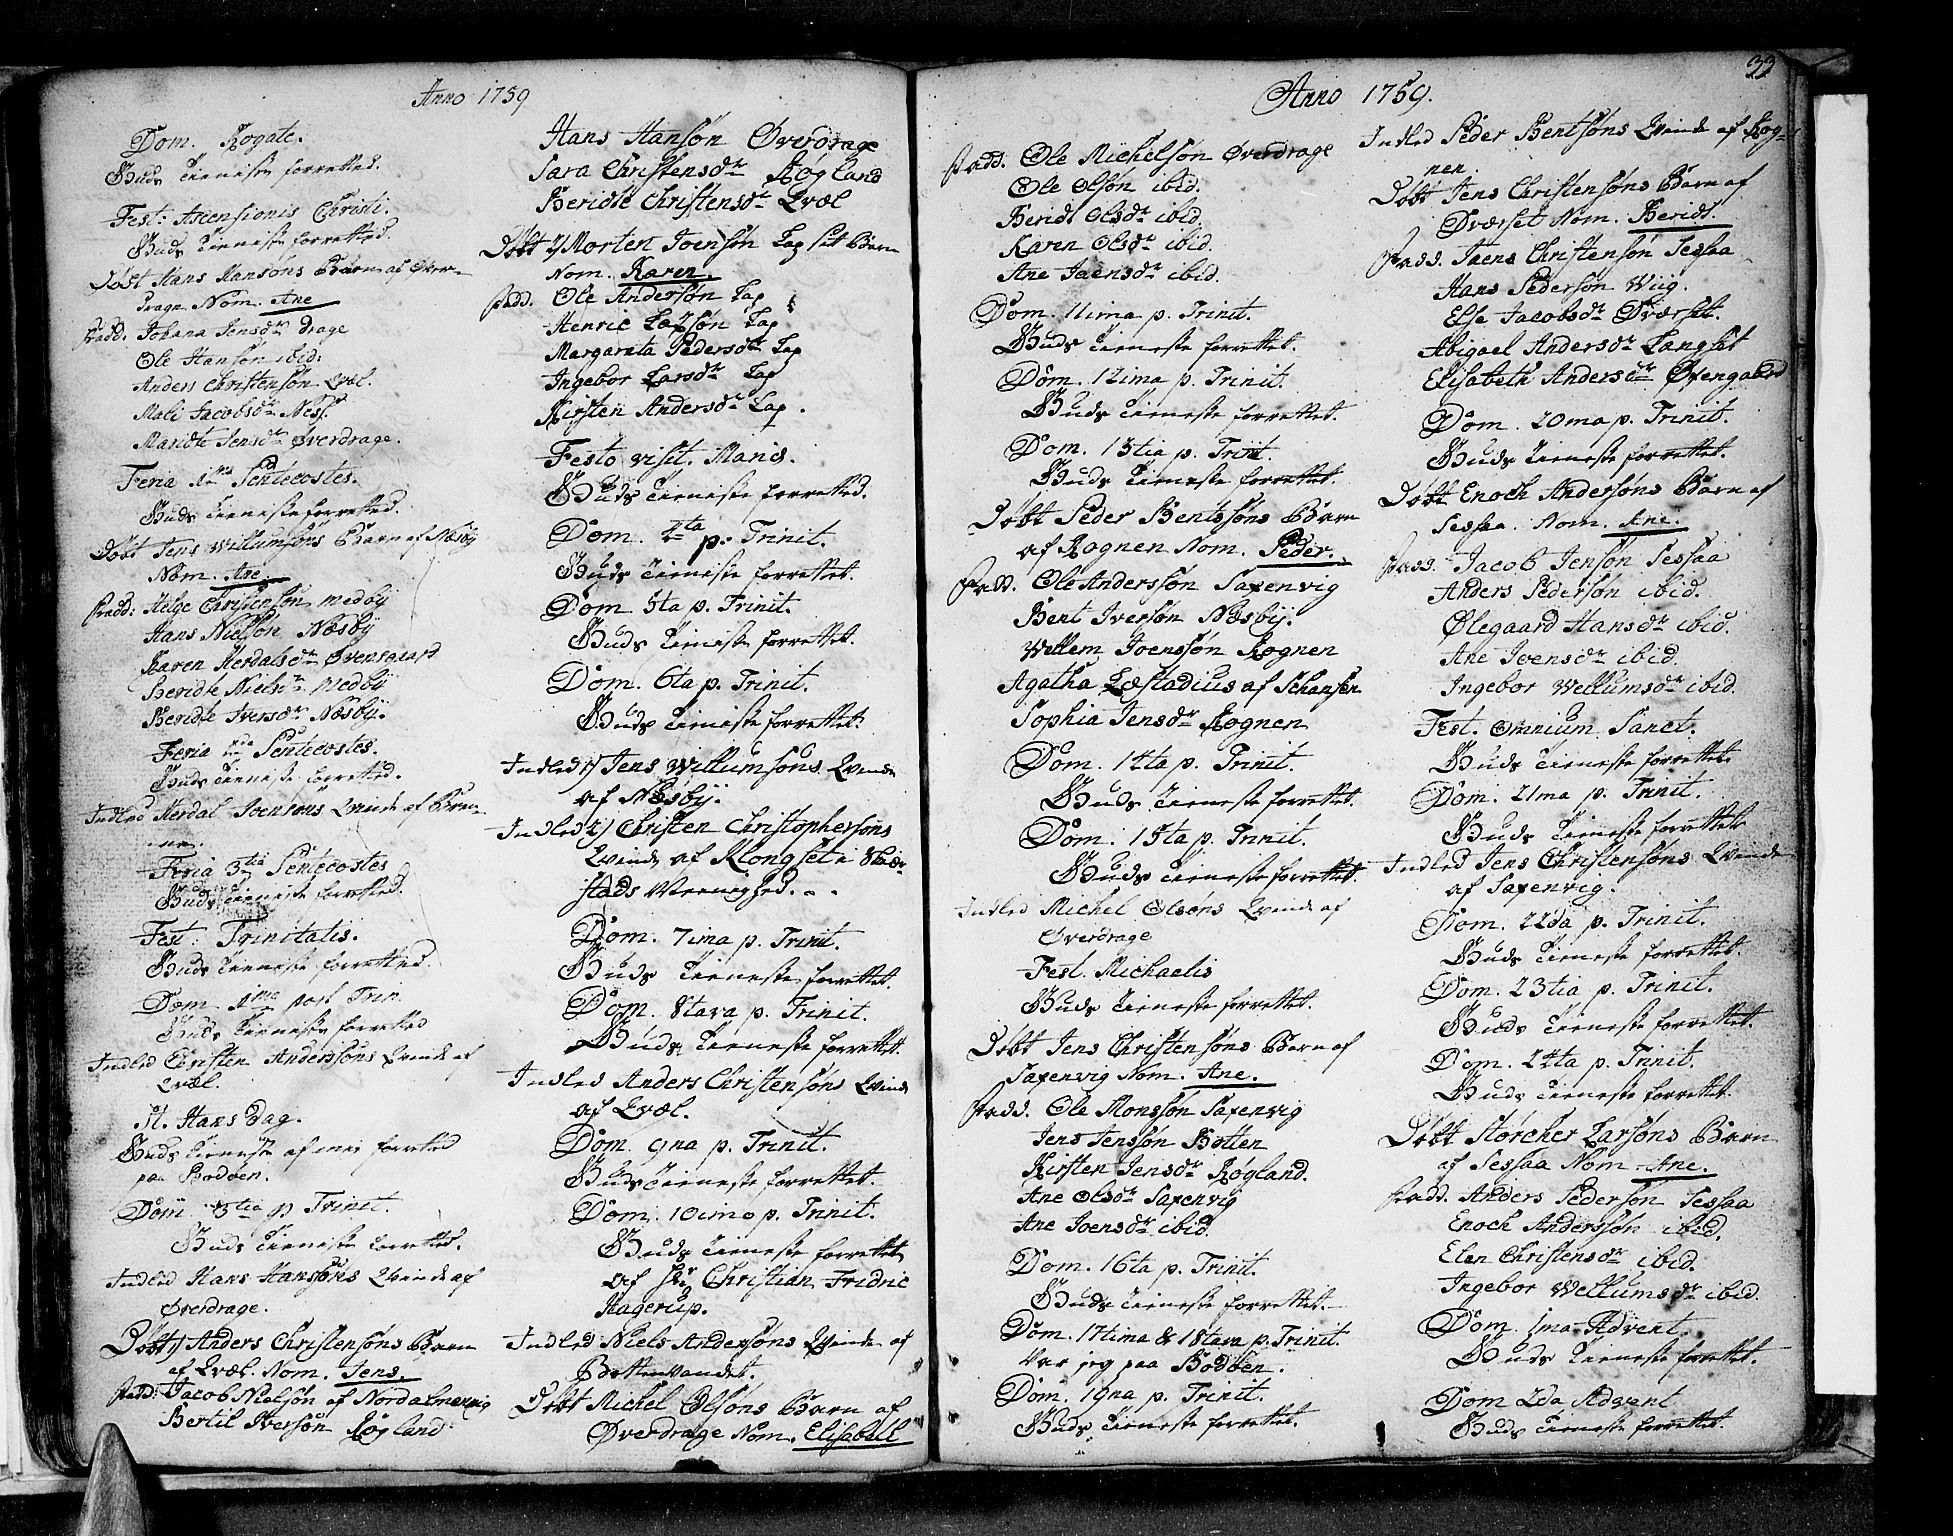 Anno 1759
Dom. Rogate.
Guds Tieniste forretted.
Fest: Ascensionis Christi.
Guds Tieniste forretted.
Døbt Hans Hansøns Barn af Øver-
dragn Nom. Ane
Fadd. Johana Jensdr Drage
Ole Hansøn ibid.
Anders Christensøn Qvæl.
Mali Jacobsdr Ness.
Maridte Jensdr Øverdrage.
Feria 1ma Pentecostes.
Guds Tieniste forretted.
Døbt Jens Willumsøns Barn af Næsby
Nom. Ane
Fadd: Helge Christensøn Medby
Hans Nielsøn Næsbÿ
Karen Herdalsdr Øvensgaard
Beridte Nielsdr Medbÿ
Beridte Iversdr Næsbÿ.
Feria 2da Pentecostes.
Guds Tieniste forretted.
Indled Herdal Joensøns Qvinde af
Feria 3tia Pentecostes
Guds Tieniste forretted.
Fest: Trinitatis.
Guds Tieniste forretted.
Dom 1ma post Trin.
Guds Tieniste forretted
Indled Christen Anderssøns Qvinde af
Qvæl.
St. Hans Dag.
Guds Tieniste af mig forretted
paa Bodøen.
Dom 3tia p Trinit.
Guds Tieniste forretted.
Indled Hans Hansøns Qvinde af
Øverdrage.
Døbt 1) Anders Christensøns Barn
af Qvæl. Nom. Jens.
Fadd: Jacob Nielsøn af Nordalmenning
Bertil Iversøn Røgland
Hans Hansøn Øverdrage
Sara Christensdr Røgland
Beridte Christensdr Qvæl
Døbt 2) Morten Joensøn Lap sit Barn
Nom. Karen.
Fadd. Ole Andersøn Lap
Henric Larsøn Lap
Margareta Pedersdr Lap
Ingebor Larsdr Lap
Kirsten Andersdr Lap.
Festo visit. Mariæ.
Guds Tieniste forretted.
Dom. 4ta p. Trinit.
Guds Tieniste forrettet.
Dom 5ta p. Trinit.
Guds Tieniste forrettet.
Dom. 6ta p. Trinit.
Guds Tieniste forrettet.
Indled 1) Jens Willumsøns Qvinde
af Næsbÿ.
Indled 2) Christen Christophersøns
Qvinde af Klongset i Skier-
stads Menighed.
Dom. 7ima p. Trinit.
Guds Tieneste forrettet.
Dom. 8tava p. Trinit.
Guds Tieneste forrettet.
Indled Anders Christensøns Qvinde
af Qvæl.
Dom. 9na p. Trinit.
Guds Tieneste forrettet.
Dom. 10ima p. Trinit.
Guds Tieneste forrettet
af Hr Christian Fridric
Hagerup.
Indled Niels Andersøns Qvinde af
Bottenvandet.
Døbt Michel Olsøns Barn af
Øverdrage Nom. Elisabell
Anno 1759.
33
Fadd. Ole Michelsøn Øverdrage
Ole Olsøn ibid.
Beridt Olsdr ibid.
Karen Olsdr ibid.
Ane Jaensdr ibid.
Dom. 11ima p. Trinit.
Guds Tieneste forrettet.
Dom. 12ima p. Trinit.
Guds Tieneste forrettet.
Dom. 13tia p. Trinit.
Guds Tieneste forrettet.
Døbt Peder Bentssøns Barn
af Rognen Nom. Peder.
Fadd. Ole Anderssøn Saxenvig
Bent Iversøn Næsbÿ.
Willem Joenssøn Rognen
Agatha Læstadius af Schansen
Sophia Jensdr Rognen
Dom. 14ta p. Trinit.
Guds Tieneste forrettet.
Dom. 15ta p. Trinit.
Guds Tieneste forrettet.
Indled Michel Olsøns Qvinde af
Øverdrage
Fest. Michaelis
Guds Tieneste forrettet.
Døbt Jens Christensøns Barn af
Saxenvig Nom. Ane.
Fadd. Ole Monssøn Saxenvig
Jens Jenssøn Botten
Kirsten Jensdr Rogland.
Ane Olsdr Saxenvig
Ane Joensdr ibid.
Dom. 16ta p. Trinit.
Guds Tieneste forrettet.
Dom. 17tima & 18tava p. Trinit.
Var jeg paa Bodøen.
Dom. 19na p. Trinit.
Guds Tieneste forrettet.
Indled Peder Bentsøns Qvinde af Rog-
nen.
Døbt Jens Christensøns Barn af
Dværset Nom. Beridt.
Fadd. Jaens Christensøn Sessaa
Hans Pedersøn Wiig.
Else Jacobsdr Dværset.
Abigael Andersdr Langset
Elisabeth Andersdr Øvengaard
Dom. 20ma p. Trinit.
Guds Tieneste forrettet.
Døbt Enoch Andersøns Barn af
Sessaa. Nom. Ane.
Fadd. Jacob Jensøn Sessaa
Anders Pedersøn ibid.
Ølegaard Hansdr ibid.
Ane Joensdr ibid.
Ingebor Wellumsdr ibid.
Fest. Omnium Sanct.
Guds Tieneste forrettet
Dom. 21ma p. Trinit.
Guds Tieneste forrettet
Indled Jens Christensøns Qvinde
af Saxenvig.
Dom. 22da p. Trinit.
Guds Tieneste forrettet.
Dom. 23tia p. Trinit.
Guds Tieneste forrettet.
Dom. 24ta p. Trinit.
Guds Tieneste forrettet.
Døbt Størcher Larsøns Barn
af Sessaa Nom. Ane.
Fadd. Anders Pedersøn Sessaa
Enoch Anderssøn ibid.
Elen Christensdr ibid.
Ingebor Wellumsdr ibid.
Dom. 1ma Advent.
Guds Tieneste forrettet.
Dom 2da Advent
Guds Tieneste forrettet.